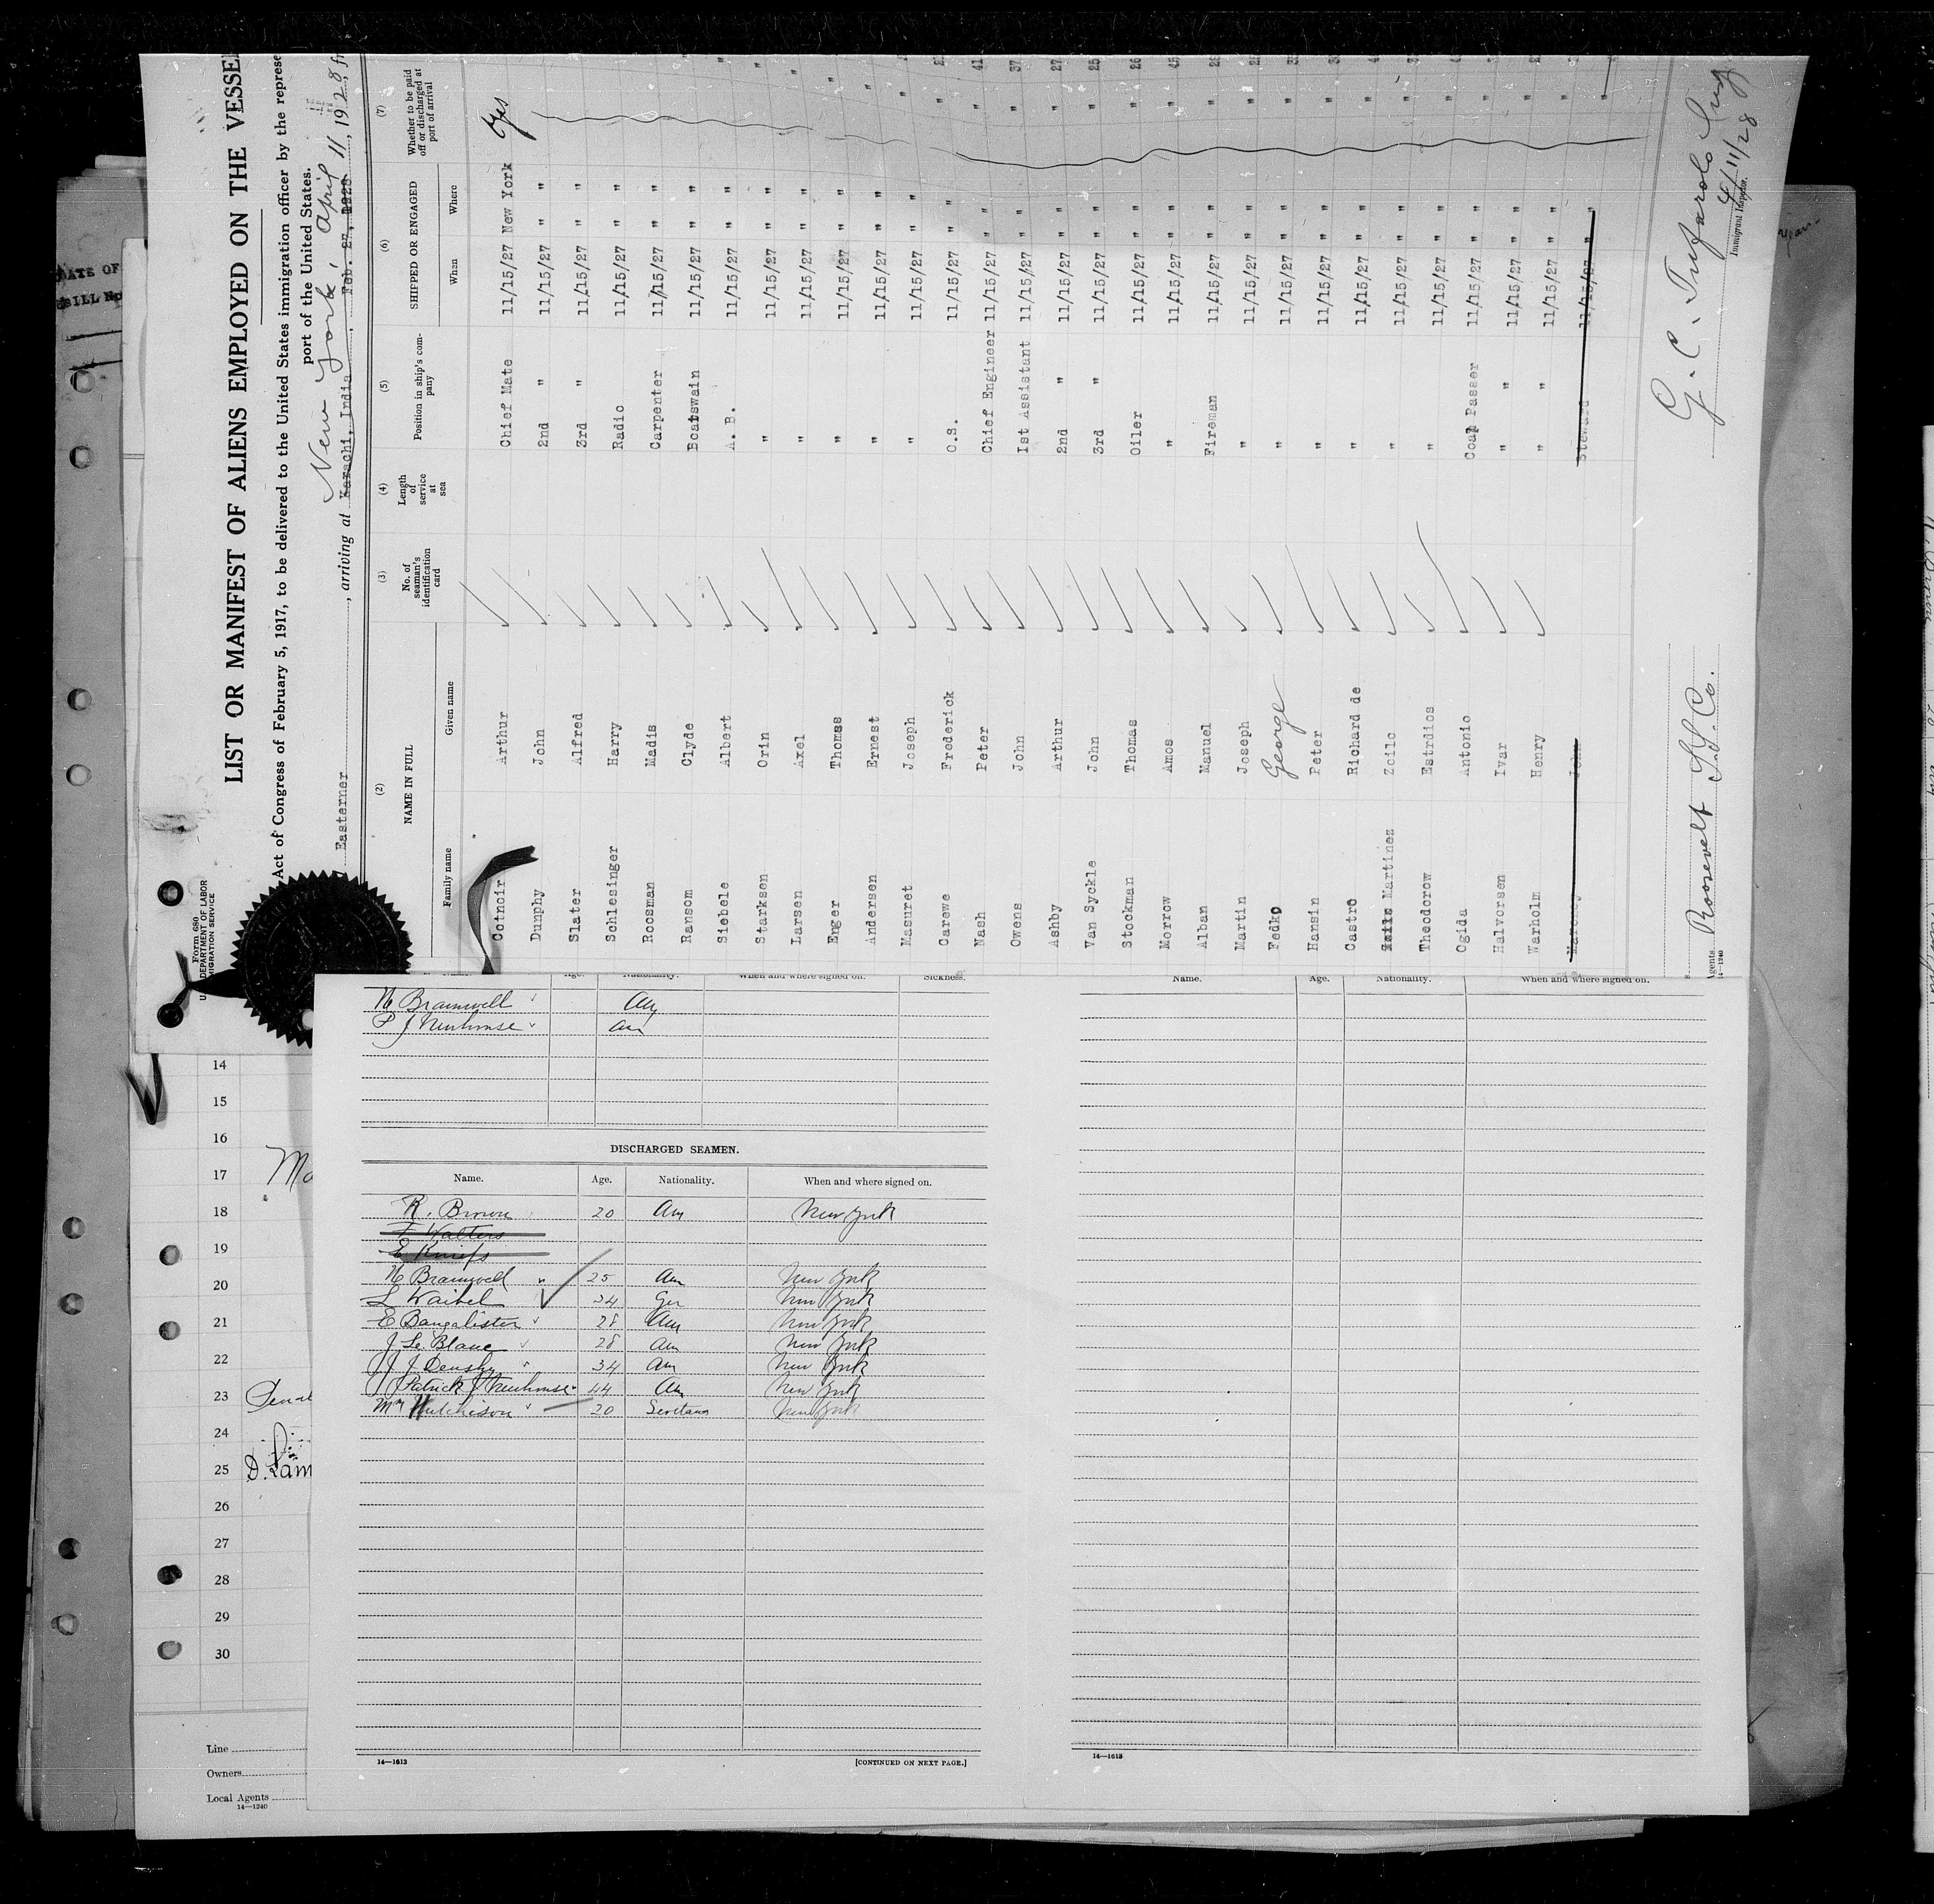 LIST OR MANIFEST OF ALIENS EMPLOYED ON THE VESSEL
Act of Congress of February 5, 1917, to be delivered to the United States immigration officer by the represe
port of the United States.
New York, April 11, 1928, fr
Easterner, arriving at Karachi, India, Feb. 27, 1928
Form 680
DEPARTMENT OF LABOR
MIGRATION SERVICE
(2) (3) (4) (5) (6) (7)
NAME IN FULL No. of seaman's identification card Length of service at sea Position in ship's company SHIPPED OR ENGAGED Whether to be paid off or discharged at port of arrival
Family name Given name When Where
Cotnoir Arthur Chief Mate 11/15/27 New York Yes
Dunphy John 2nd " 11/15/27 " "
Slater Alfred 3rd " 11/15/27 " "
Schlesinger Harry Radio 11/15/27 " "
Roosman Madis Carpenter 11/15/27 " "
Ransom Clyde Boatswain 11/15/27 " "
Siebele Albert A. B. 11/15/27 " "
Starksen Orin " 11/15/27 " "
Larsen Axel " 11/15/27 " "
Enger Thomas " 11/15/27 " "
Andersen Ernest " 11/15/27 " "
Masuret Joseph " 11/15/27 " "
Carewe Frederick O.S. 11/15/27 " "
Nash Peter Chief Engineer 11/15/27 " " " 41
Owens John 1st Assistant 11/15/27 " " " 37
Ashby Arthur 2nd " 11/15/27 " " " 27
Van Syckle John 3rd " 11/15/27 " " " 25
Stockman Thomas Oiler 11/15/27 " " " 26
Morrow Amos " 11/15/27 " " "
Alban Manuel Fireman 11/15/27 " " "
Martin Joseph " 11/15/27 " " "
Fedko George " 11/15/27 " " "
Hansin Peter " 11/15/27 " " "
Castro Richard de " 11/15/27 " " "
Martinez Zoilo " 11/15/27 " " "
Theodorow Estrdios " 11/15/27 " " "
Ogida Antonio Coal Passer 11/15/27 " " "
Halvorsen Ivar " " 11/15/27 " " "
Warholm Henry " " 11/15/27 " " "
John Steward 11/15/27 " "
Agents Roosevelt S.S. Co.
14—1240
G. C.
4/11/28
Immigrant Inspector.
DATE OF
BILL No
Name. Age. Nationality. When and where signed on. Sickness.
Name. Age. Nationality. When and where signed on.
N Bramwell Am
P J Newhouse Am
DISCHARGED SEAMEN.
Name. Age. Nationality. When and where signed on.
R. Brown 20 Am New York
F Walters
E Kniefs
N Bramwell 25 Am New York
L Waibel 34 Ger New York
E Bangalister 28 Am New York
J Le Blanc 28 Am New York
J J Densky 34 Am New York
Patrick J Newhouse 44 Am New York
Mr Hutchison 20 New York
14—1613 [CONTINUED ON NEXT PAGE.]
14—1613
14
15
16
17 Mo
18
19
20
21
22
23
24
25 D. Lam
26
27
28
29
30
Line
Owners
Local Agents
14—1240